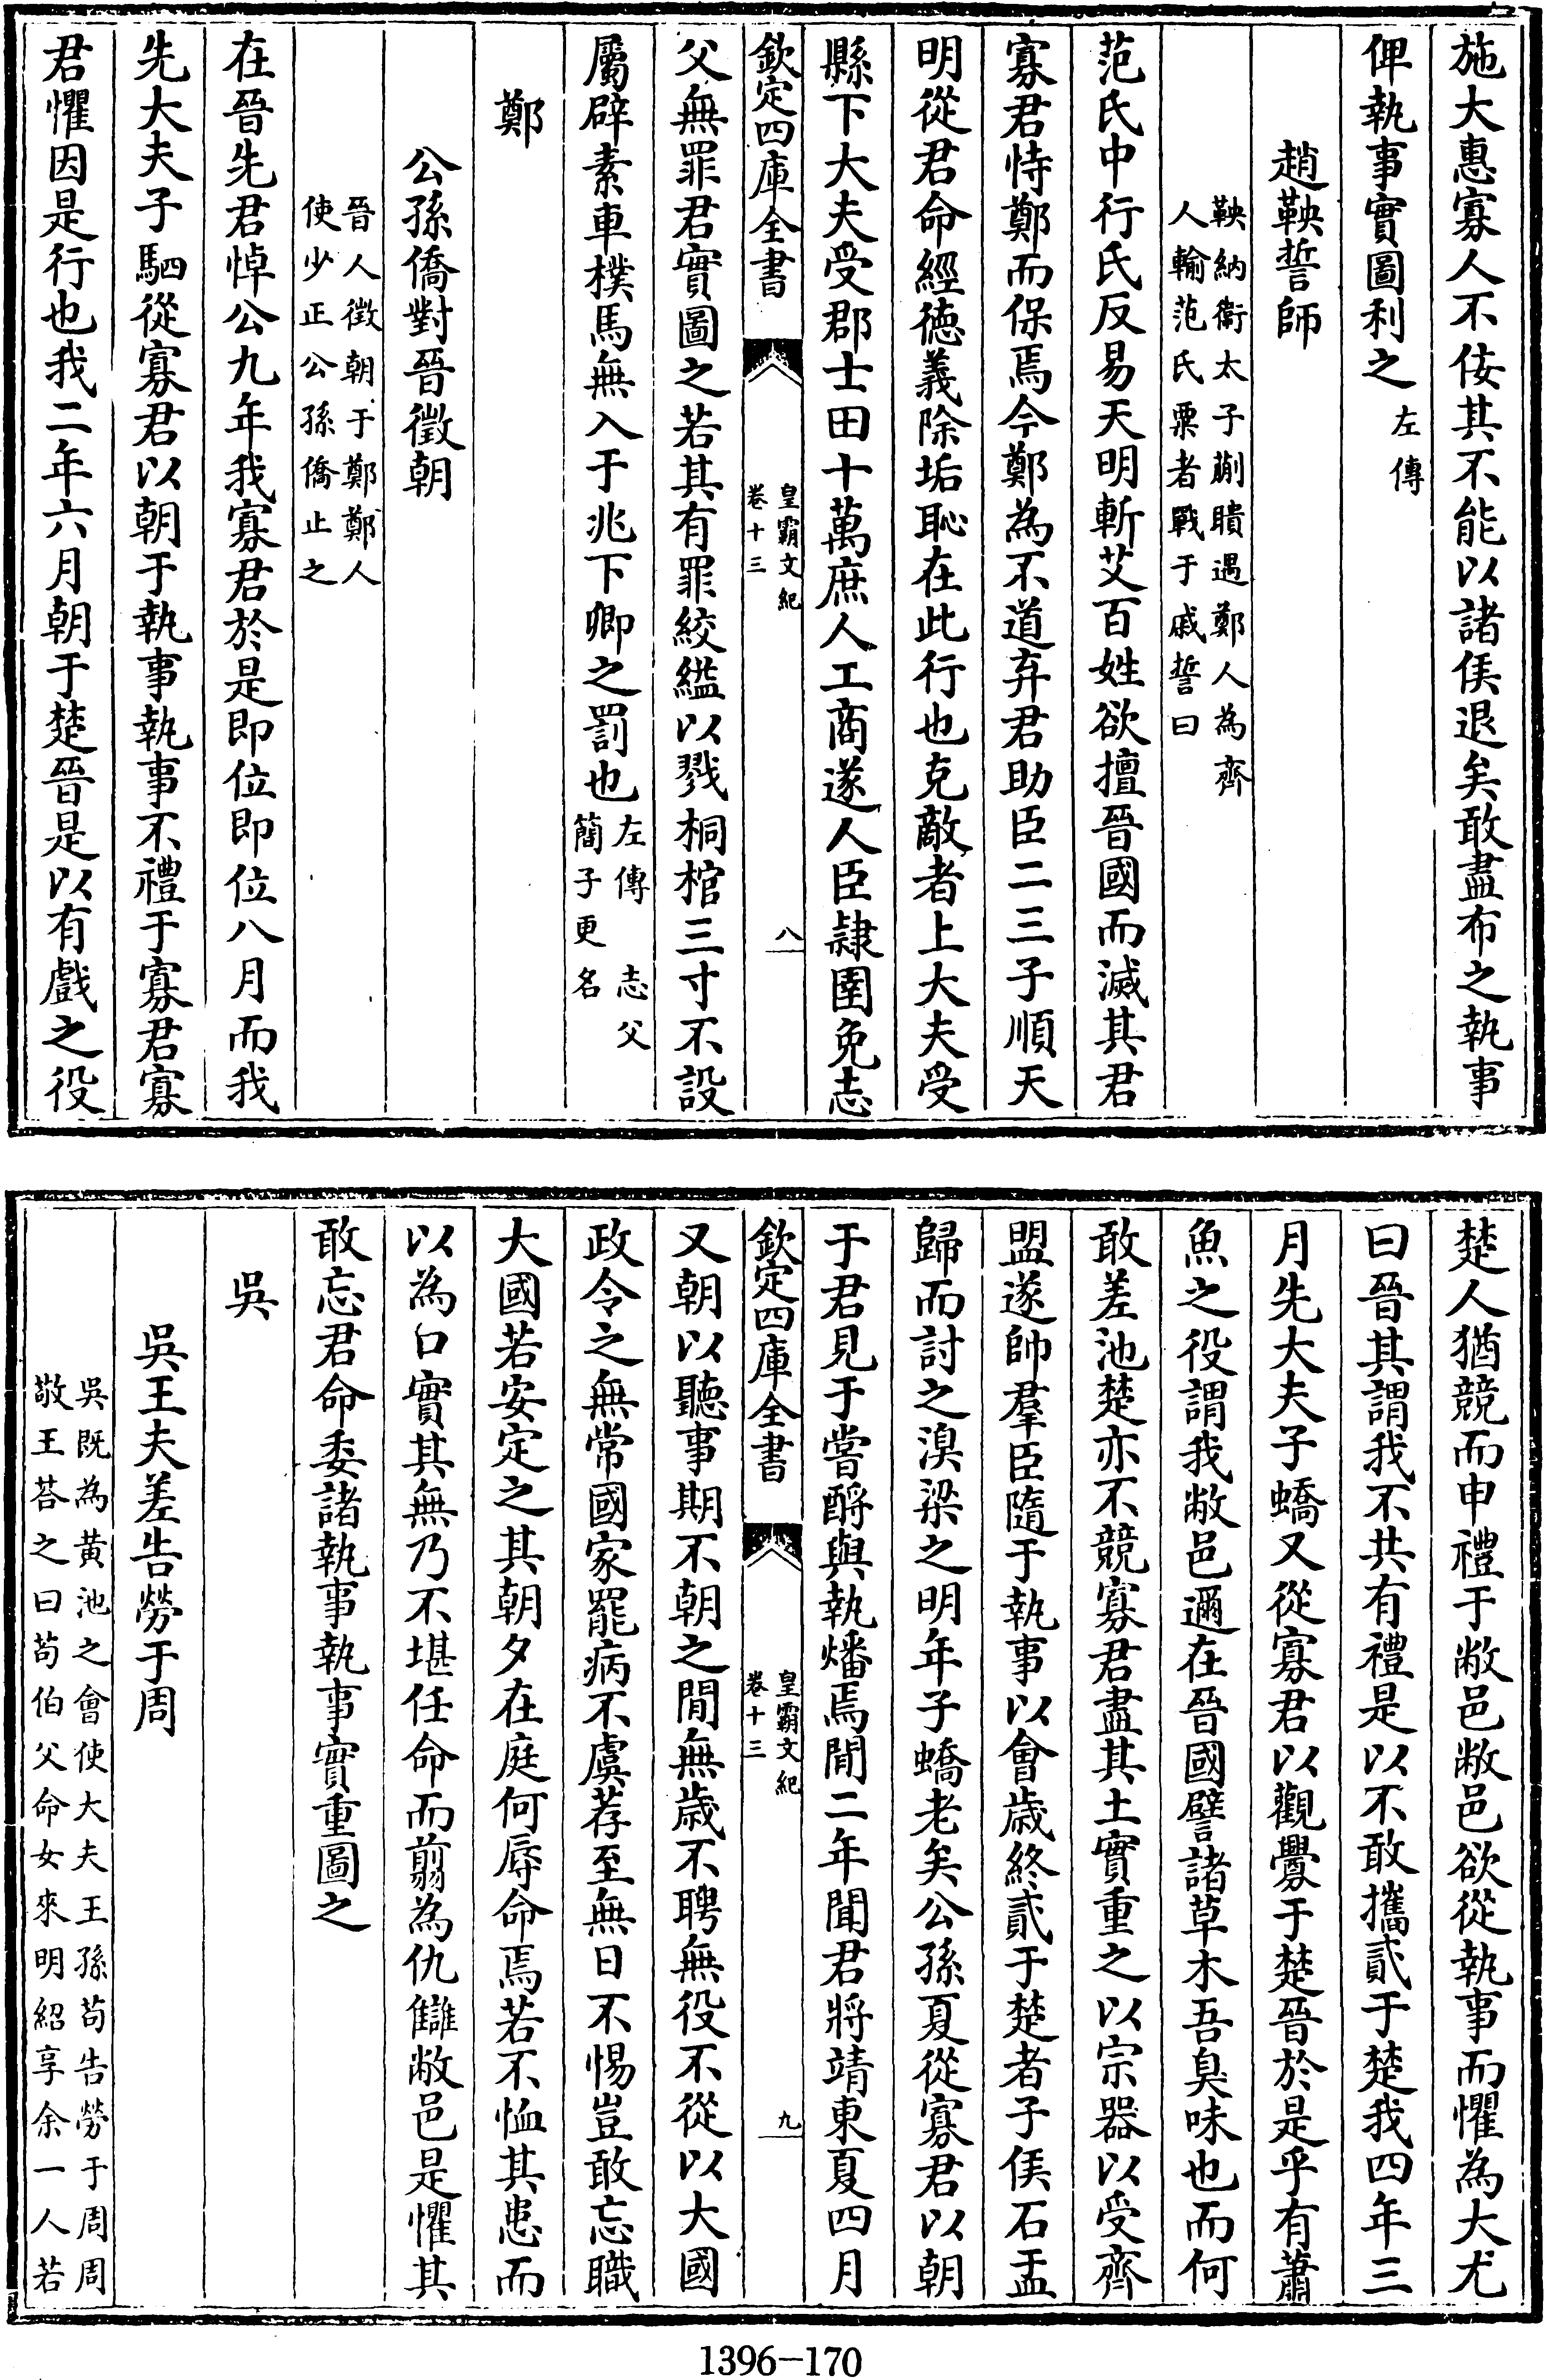 施大惠寡人不佞其不能以諸侯退矣敢盡布之執事
俾執事實圖利之左傳
趙鞅誓師
鞅納衛太子蒯聵遇鄭人為齊
人輸范氏粟者戰于戚誓曰
范氏中行氏反易天明斬艾百姓欲擅晉國而滅其君
寡君恃鄭而保焉今鄭為不道弃君助臣二三子順天
明從君命經徳義除垢恥在此行也克敵者上大夫受
縣下大夫受郡士田十萬庶人工商遂人臣隷圉免志
欽定四庫全書
皇霸文紀
卷十三
八
父無罪君實圖之若其有罪絞縊以戮桐棺三寸不設
屬辟素車樸馬無入于兆下卿之罰也左傳 志父
簡子更名
鄭
公孫僑對晉徵朝
晉人徴朝于鄭鄭人
使少正公孫僑止之
在晉先君悼公九年我寡君於是即位即位八月而我
先大夫子駟從寡君以朝于執事執事不禮于寡君寡
君懼因是行也我二年六月朝于楚晉是以有戲之役
楚人猶競而申禮于敝邑敝邑欲從執事而懼為大尤
曰晉其謂我不共有禮是以不敢攜貳于楚我四年三
月先大夫子蟜又從寡君以觀釁于楚晉於是乎有蕭
魚之役謂我敝邑邇在晉國譬諸草木吾臭味也而何
敢差池楚亦不競寡君盡其土實重之以宗器以受齊
盟遂帥羣臣隨于執事以會歳終貳于楚者子侯石盂
歸而討之湨梁之明年子蟜老矣公孫夏從寡君以朝
于君見于嘗酎與執燔焉閒二年聞君將靖東夏四月
欽定四庫全書
皇霸文紀
卷十三
九
又朝以聽事期不朝之閒無歳不聘無役不從以大國
政令之無常國家罷病不虞荐至無日不惕豈敢忘職
大國若安定之其朝夕在庭何辱命焉若不恤其患而
以為口實其無乃不堪任命而翦為仇讎敝邑是懼其
敢忘君命委諸執事執事實重圖之
吳
吳王夫差告勞于周
吳既為黄池之會使大夫王孫苟告勞于周周
敬王荅之曰苟伯父命女來明紹享余一人若
1396-170